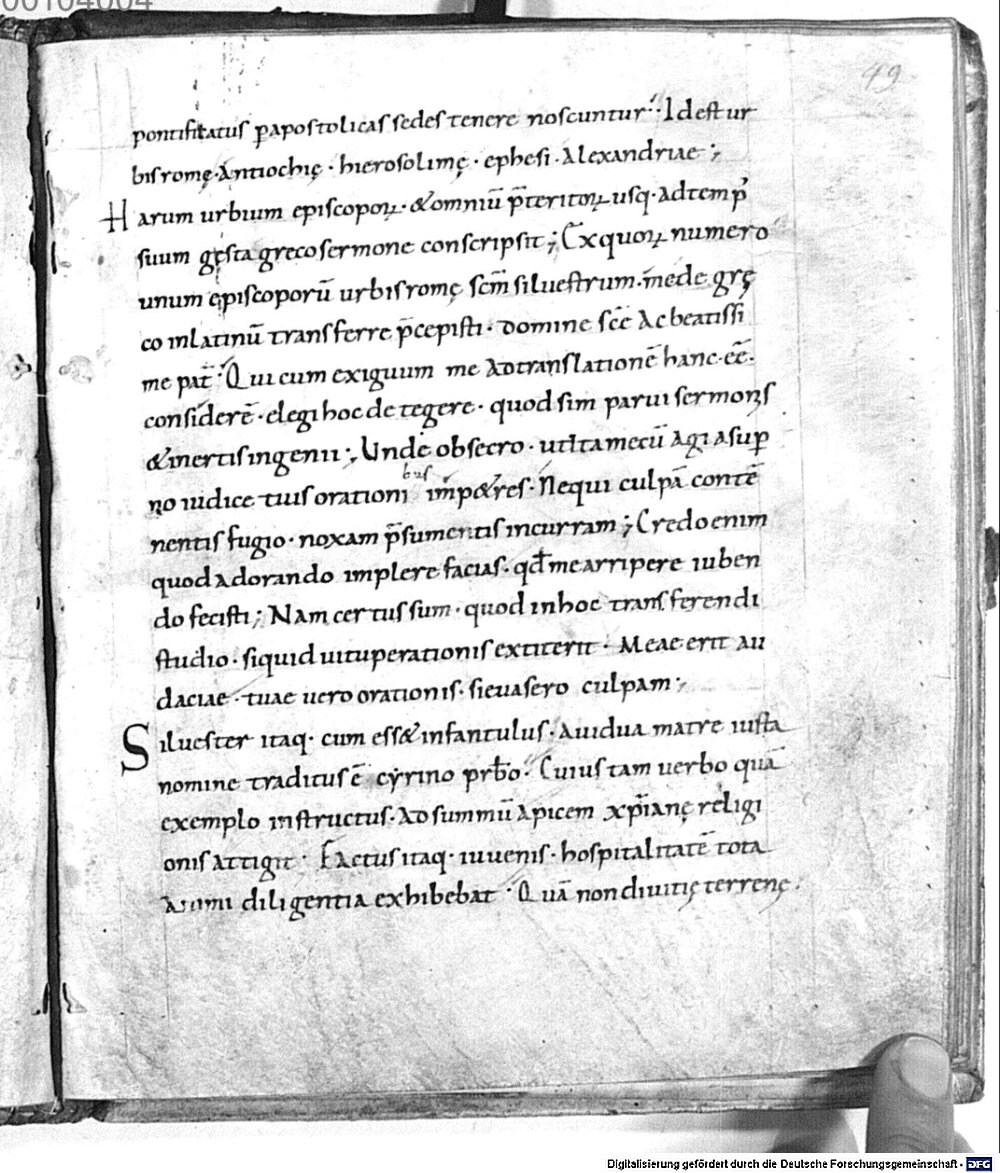 00104004
49
pontificatus ꝑ apostolicas sedes tenere noscuntur; Id est ur
bis romę · Antiochię · hierosolimę · ephesi · Alexandriae ;
Harum urbium episcopoꝝ · & omniū p̄teritoꝝ usq· ad temp̄
suum gęsta greco sermone conscripsit ; Ex quoꝝ numero
unum episcoporū urbis romę scm̄ siluestrum · me de grę
co in latinū transferre p̄cepisti · domine scē Ac beatissi
me pat̄ ; Qui cum exiguum me Ad translationē hanc · eē ·
considerē · elegi hoc detegere · quod sim parui sermonis
& inertis ingenii ; Unde obsecro · ut ita mecū Agi a suꝑ
no iudice tuis orationibus imp&res · Ne qui culpā contē
nentis fugio · noxam p̄sumentis incurram ; Credo enim
quod adorando implere facias · qđ me arripere iuben
do fecisti ; Nam certus sum · quod in hoc transferendi
studio · si quid uituperationis extiterit · Meae erit au
daciae · tuae uero orationis · si euasero culpam ;
Siluester itaq· cum ess& infantulus · A uidua matre iusta
nomine traditus ē cyrino prb̄o · Cuius tam uerbo quā
exemplo instructus · Ad summū Apicem xp̄ianę religi
onis attigit · Factus itaq· iuuenis · hospitalitatē tota
Animi diligentia exhibebat · Quā non diuitię terrenę ·
Digitalisierung gefördert durch die Deutsche Forschungsgemeinschaft - DFG